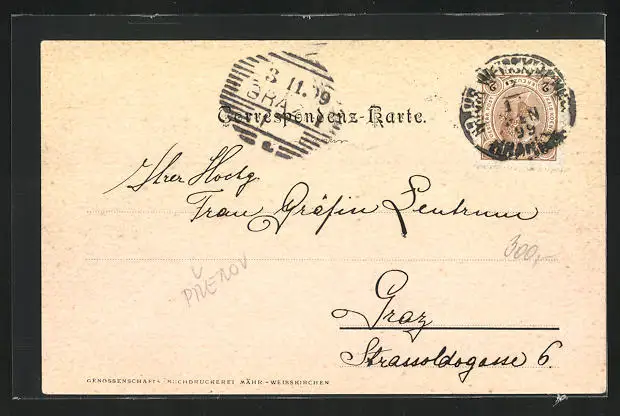 3 11.99
GRAZ
Correspondenz-Karte.
99
Ihrer Hochg
Frau Gräfin Lentrum
300,-
PŘEROV
Graz
Strassoldogasse 6.
GENOSSENSCHAFTS-BUCHDRUCKEREI MÄHR-WEISSKIRCHEN